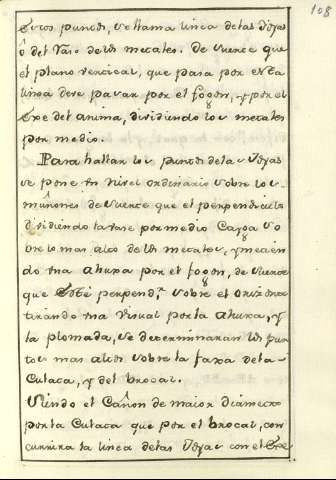 108
Estos puntos, se llama linea delas Joyas
ô del Raso de los metales. De suerte que
el plano vertical, que pasa por esta
linea deve pasar por el fogon, y por el
Exe del anima, dividiendo los metales
por medio.
Para hallar los puntos dela Joyas
se pone un nivel ordinario sobre los
muñones de suerte que el perpendiculo
dividiendo la vase por medio Cayga so
vre lo mas alto de los metales, y metien
do una ahuxa por el fogon, de suerte
que Esté perpend.r sobre el orizonte
tirando una visual por la ahuxa, y
la plomada, se determinarán los pun
tos mas altos sobre la faxa dela
Culata, y del brocal.
Siendo el Cañon de maior diámetro
por la Culata que por el brocal, con
currira la linea delas Joyas con el Exe